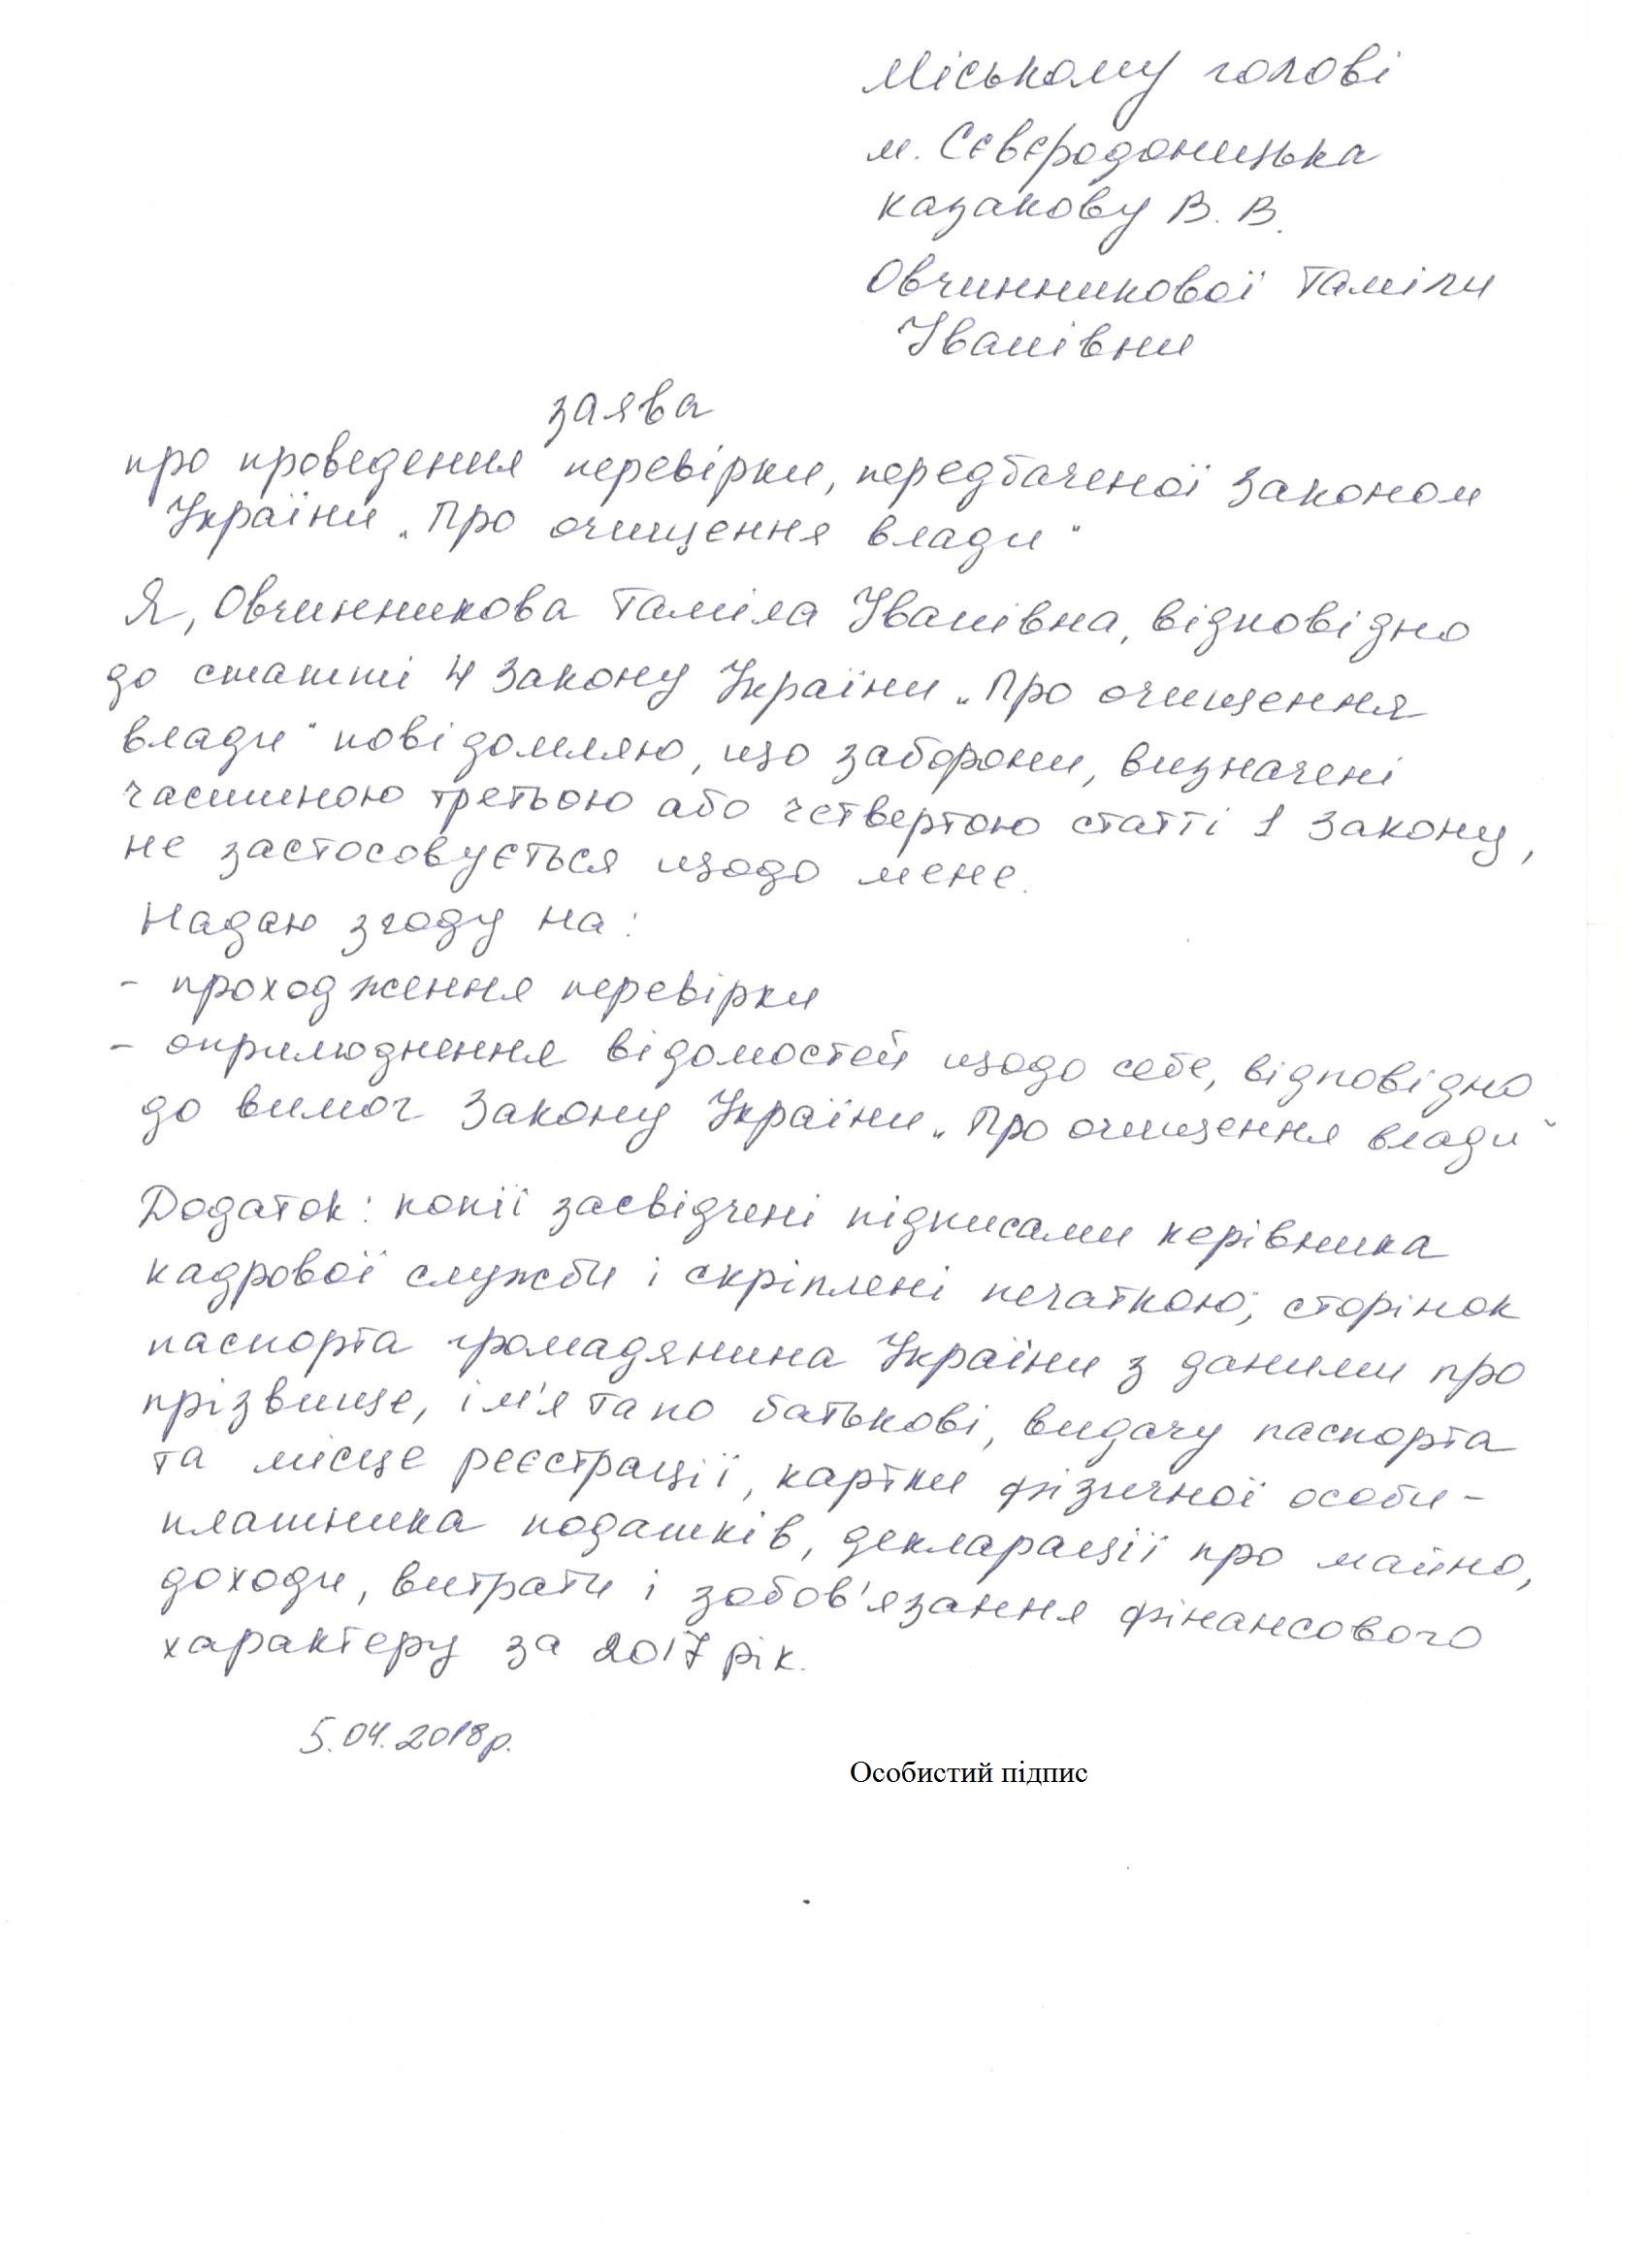 Міському голові
м. Сєвєродонецька
Казакову В. В.
Овчинникової Таміли
Іванівни
заява
про проведення перевірки, передбаченої Законом
України „Про очищення влади"
Я, Овчинникова Таміла Іванівна, відповідно
до статті 4 Закону України „Про очищення
влади" повідомляю, що заборони, визначені
частиною третьою або четвертою статті 1 Закону,
не застосовується щодо мене.
Надаю згоду на:
- проходження перевірки
- оприлюднення відомостей щодо себе, відповідно
до вимог Закону України „Про очищення влади"
Додаток: копії засвідчені підписами керівника
кадрової служби і скріплені печаткою; сторінок
паспорта громадянина України з даними про
прізвище, ім'я та по батькові, видачу паспорта
та місце реєстрації, картки фізичної особи-
платника податків, декларації про майно,
доходи, витрати і зобов'язання фінансового
характеру за 2017 рік.
5.04.2018р.
Особистий підпис